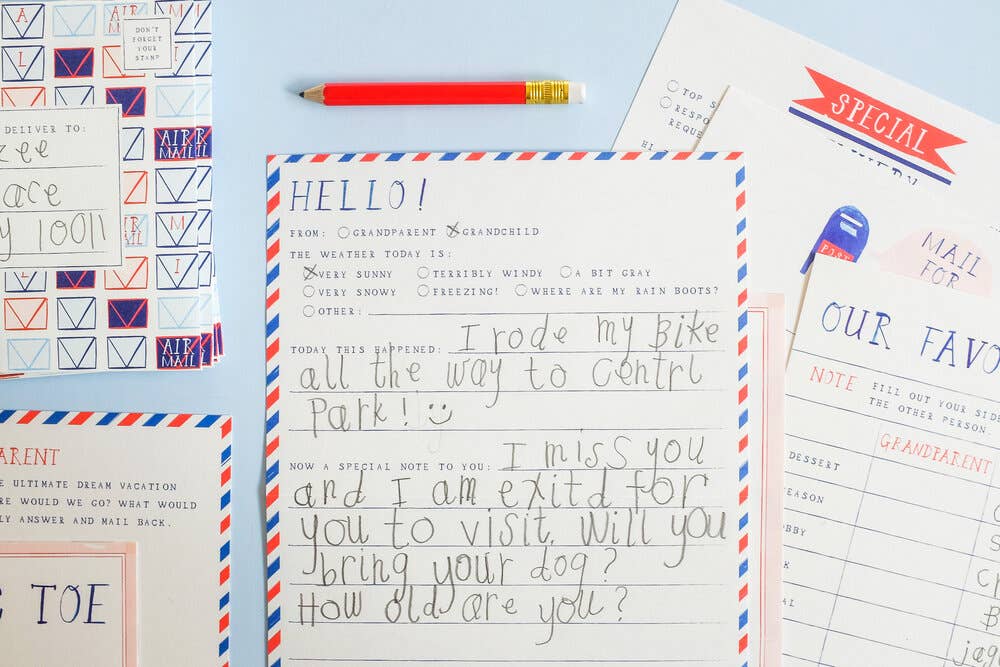 DON'T
FORGET
YOUR
STAMP
DELIVER TO:
10011
AIR
MAIL
AIR
MAIL
HELLO!
FROM: GRANDPARENT GRANDCHILD
THE WEATHER TODAY IS:
VERY SUNNY TERRIBLY WINDY A BIT GRAY
VERY SNOWY FREEZING! WHERE ARE MY RAIN BOOTS?
OTHER:
TODAY THIS HAPPENED: I rode my Bike
all the way to Centrl
Park!
NOW A SPECIAL NOTE TO YOU: I miss you
and I am exitd for
you to visit. Will you
bring your dog?
How old are you?
ARENT
E ULTIMATE DREAM VACATION
RE WOULD WE GO? WHAT WOULD
LY ANSWER AND MAIL BACK.
TOE
TOP S
RESPO
REQUE
SPECIAL
MAIL
FOR
OUR FAVO
NOTE FILL OUT YOUR SIDE
THE OTHER PERSON.
GRANDPARENT
DESSERT
EASON
BBY